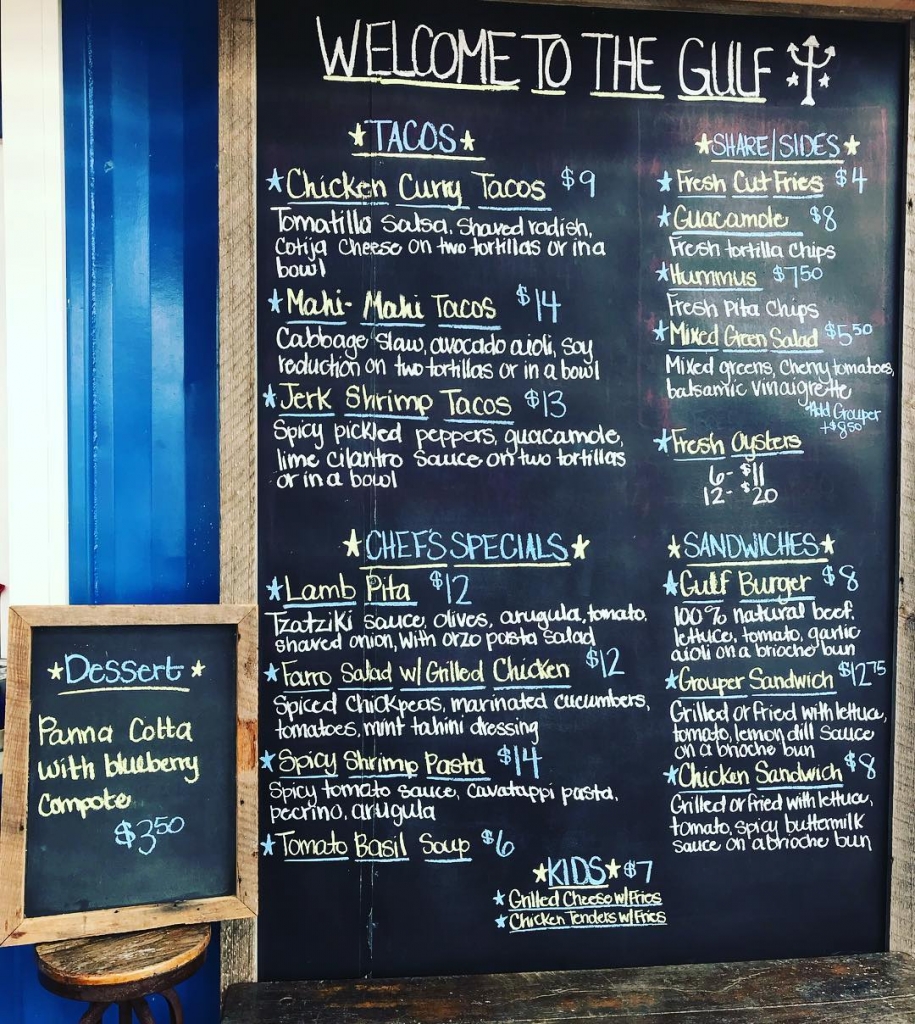 WELCOME TO THE GULF
TACOS
Chicken Curry Tacos $9
Tomatilla Salsa, shaved radish,
Cotija Cheese on two tortillas or in a
bowl
Mahi-Mahi Tacos $14
Cabbage slaw, avocado aioli, soy
reduction on two tortillas or in a bowl
Jerk Shrimp Tacos $13
Spicy pickled peppers, guacamole,
lime cilantro sauce on two tortillas
or in a bowl
SHARE/SIDES
Fresh Cut Fries $4
Guacamole $8
Fresh tortilla chips
Hummus $7.50
Fresh Pita Chips
Mixed Green Salad $5.50
Mixed greens, cherry tomatoes,
balsamic vinaigrette
Add Grouper
+$8.50
Fresh Oysters
6- $11
12- $20
CHEF'S SPECIALS
Lamb Pita $12
Tzatziki sauce, olives, arugula, tomato,
shaved onion, with orzo pasta salad
Farro Salad w/ Grilled Chicken $12
Spiced chickpeas, marinated cucumbers,
tomatoes, mint tahini dressing
Spicy Shrimp Pasta $14
Spicy tomato sauce, cavatappi pasta,
pecrino, arugula
Tomato Basil Soup $6
SANDWICHES
Gulf Burger $8
100% natural beef,
lettuce, tomato, garlic
aioli on a brioche bun
Grouper Sandwich $12.75
Grilled or fried with lettuce,
tomato, lemon dill sauce
on a brioche bun
Chicken Sandwich $8
Grilled or fried with lettuce,
tomato, spicy buttermilk
sauce on a brioche bun
KIDS $7
Grilled Cheese w/ Fries
Chicken Tenders w/ Fries
Dessert
Panna Cotta
with blueberry
compote
$3.50